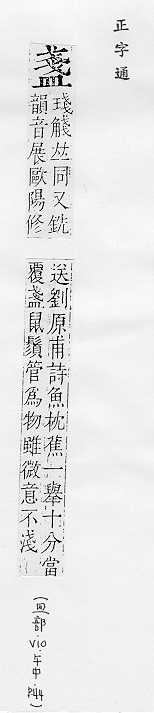 正字通
盞
琖觴𠀤同又銑
韻音展歐陽修
送劉原甫詩魚枕蕉一舉十分當
覆盞鼠鬚管爲物雖微意不淺
(皿部·V10·午中·P44)